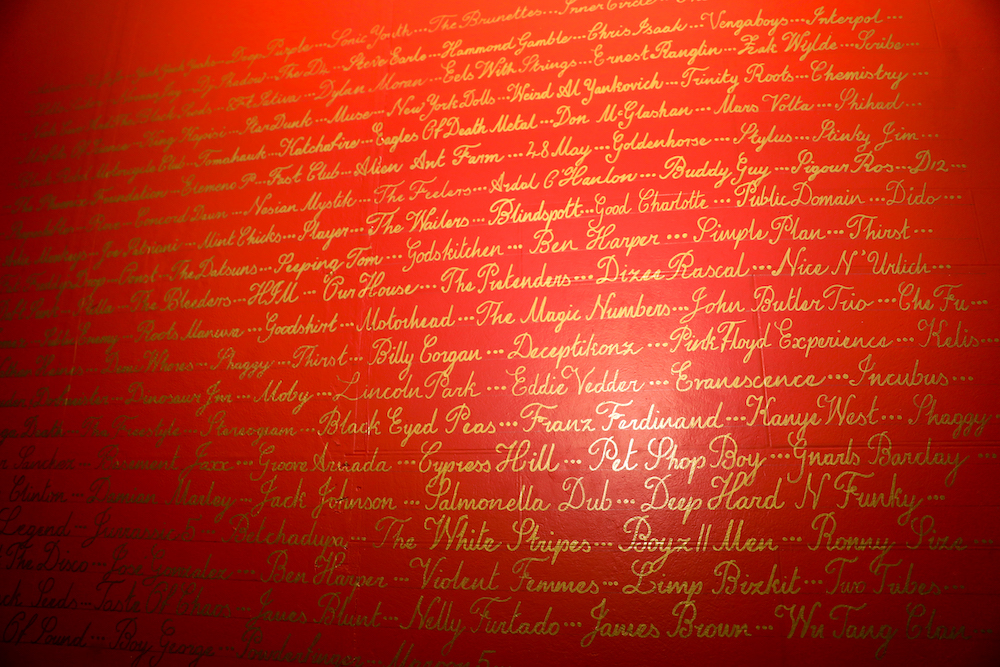 Deep Purple...Sonic Youth...The Brunettes...Inner Circle
Dj Shadow...The D4...Steve Earle...Hammond Gamble...Chris Isaak...Vengaboys...Interpol...
Dylan Moran...Eels With Strings...Ernest Ranglin...Zak Wylde...Scribe...
King Kapisi...StarDunk...Muse...New York Dolls...Weird Al Yankovich...Trinity Roots...Chemistry...
Tomahawk...Katchafire...Eagles Of Death Metal...Don McGlashan...Mars Volta...Shihad...
Foundation...Elemeno P...Fast Club...Alien Ant Farm...48 May...Goldenhorse...Stylus...Stinky Jim...
Concord Dawn...Nesian Mystik...The Feelers...Ardal O Hanlon...Buddy Guy...Sigour Ros...D12...
Joe Satriani...Mint Chicks...Slayer...The Wailers...Blindspott...Good Charlotte...Public Domain...Dido...
The Datsuns...Seeping Tom...Godskitchen...Ben Harper...Simple Plan...Thirst...
The Bleeders...HIM...Our House...The Pretenders...Dizee Rascal...Nice N' Urlich...
Roots Maneva...Goodshirt...Motorhead...The Magic Numbers...John Butler Trio...Che Fu...
Shaggy...Thirst...Billy Corgan...Deceptikonz...Pink Floyd Experience...Kelis...
Dinosaur Jnr...Moby...Lincoln Park...Eddie Vedder...Evanescence...Incubus...
The Freestyle...Stereogram...Black Eyed Peas...Franz Ferdinand...Kanye West...Shaggy
Basement Jaxx...Groove Armada...Cypress Hill...Pet Shop Boy...Gnarls Barclay...
Clinton...Damian Marley...Jack Johnson...Salmonella Dub...Deep Hard N Funky...
Legend...Jurassic 5...Belchadupa...The White Stripes...Boyz II Men...Ronny Size...
The Disco...Ben Harper...Violent Femmes...Limp Bizkit...Two Tubes...
Seeds...Taste Of Chaos...James Blunt...Nelly Furtado...James Brown...Wu Tang Clan...
Of Sound...Boy George...Maroon 5